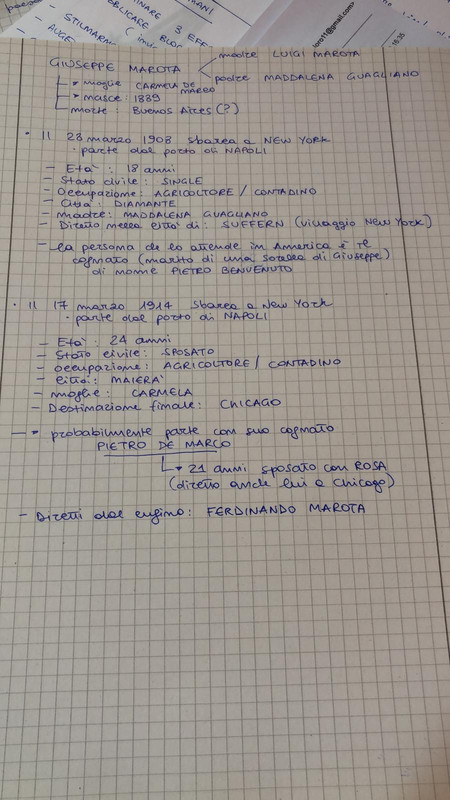 - STILMARN
- AUGE
3 EFF
loro11@gmail.com>
15:35
madre LUIGI MAROTA
GIUSEPPE MAROTA
padre MADDALENA GUAGLIANO
* moglie CARMELA DE MARCO
* nasce: 1889
morte: Buenos Aires (?)
• Il 28 marzo 1908 sbarca a NEW YORK
• parte dal porto di NAPOLI
- Età: 18 anni
- Stato civile: SINGLE
- Occupazione: AGRICOLTORE / CONTADINO
- Città: DIAMANTE
- madre: MADDALENA GUAGLIANO
- Diretto nella città di: SUFFERN (villaggio New York)
- la persona che lo attende in America è il
cognato (marito di una sorella di Giuseppe)
di nome PIETRO BENVENUTO
• Il 17 marzo 1914 sbarca a New York
• parte dal porto di NAPOLI
- Età: 24 anni
- Stato civile: SPOSATO
- occupazione: AGRICOLTORE / CONTADINO
- città: MAIERA'
- moglie: CARMELA
- Destinazione finale: CHICAGO
- * probabilmente parte con suo cognato
PIETRO DE MARCO
* 21 anni sposato con ROSA
(diretto anche lui a Chicago)
- Diretti dal cugino: FERDINANDO MAROTA